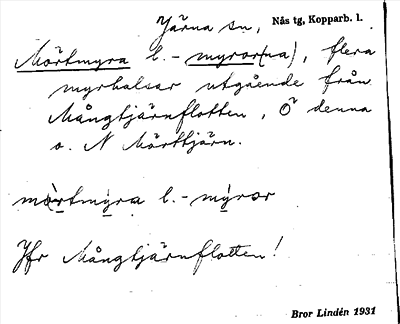 Järna sn, Nås tg, Kopparb. l.
Mörtmyra l. - myror(na), flera
myrhalsar utgående från
Mångtjärnflotten, Ö denna
o. N Mörttjärn.
mòrtmy̱ra l. - my̱ror
Jfr Mångtjärnflotten!
Bror Lindén 1931